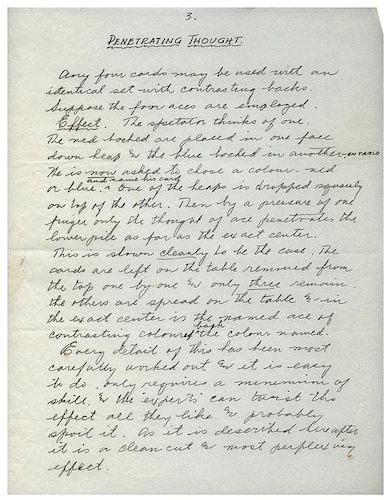 3.
PENETRATING THOUGHT.
Any four cards may be used with an
identical set with contrasting backs.
Suppose the four aces are employed.
Effect. The spectator thinks of one.
The red backed are placed in one face
down heap & the blue backed in another - ON TABLE
He is now asked to chose a colour - red
and name his card
or blue. One of the heaps is dropped squarely
on top of the other. Then by a pressure of one
finger only the thought of ace penetrates the
lower pile as far as the exact center.
This is shown cleanly to be the case. The
cards are left on the table removed from
the top one by one & only three remain.
the others are spread on the table & in
the exact center is the named ace of
back
contrasting coloured the colour named.
Every detail of this has been most
carefully worked out & it is easy
to do. only requires a minimum of
skill, & the expert can twist the
effect all they like & probably
spoil it. As it is described hereafter
it is a clean cut & most perplexing
effect.